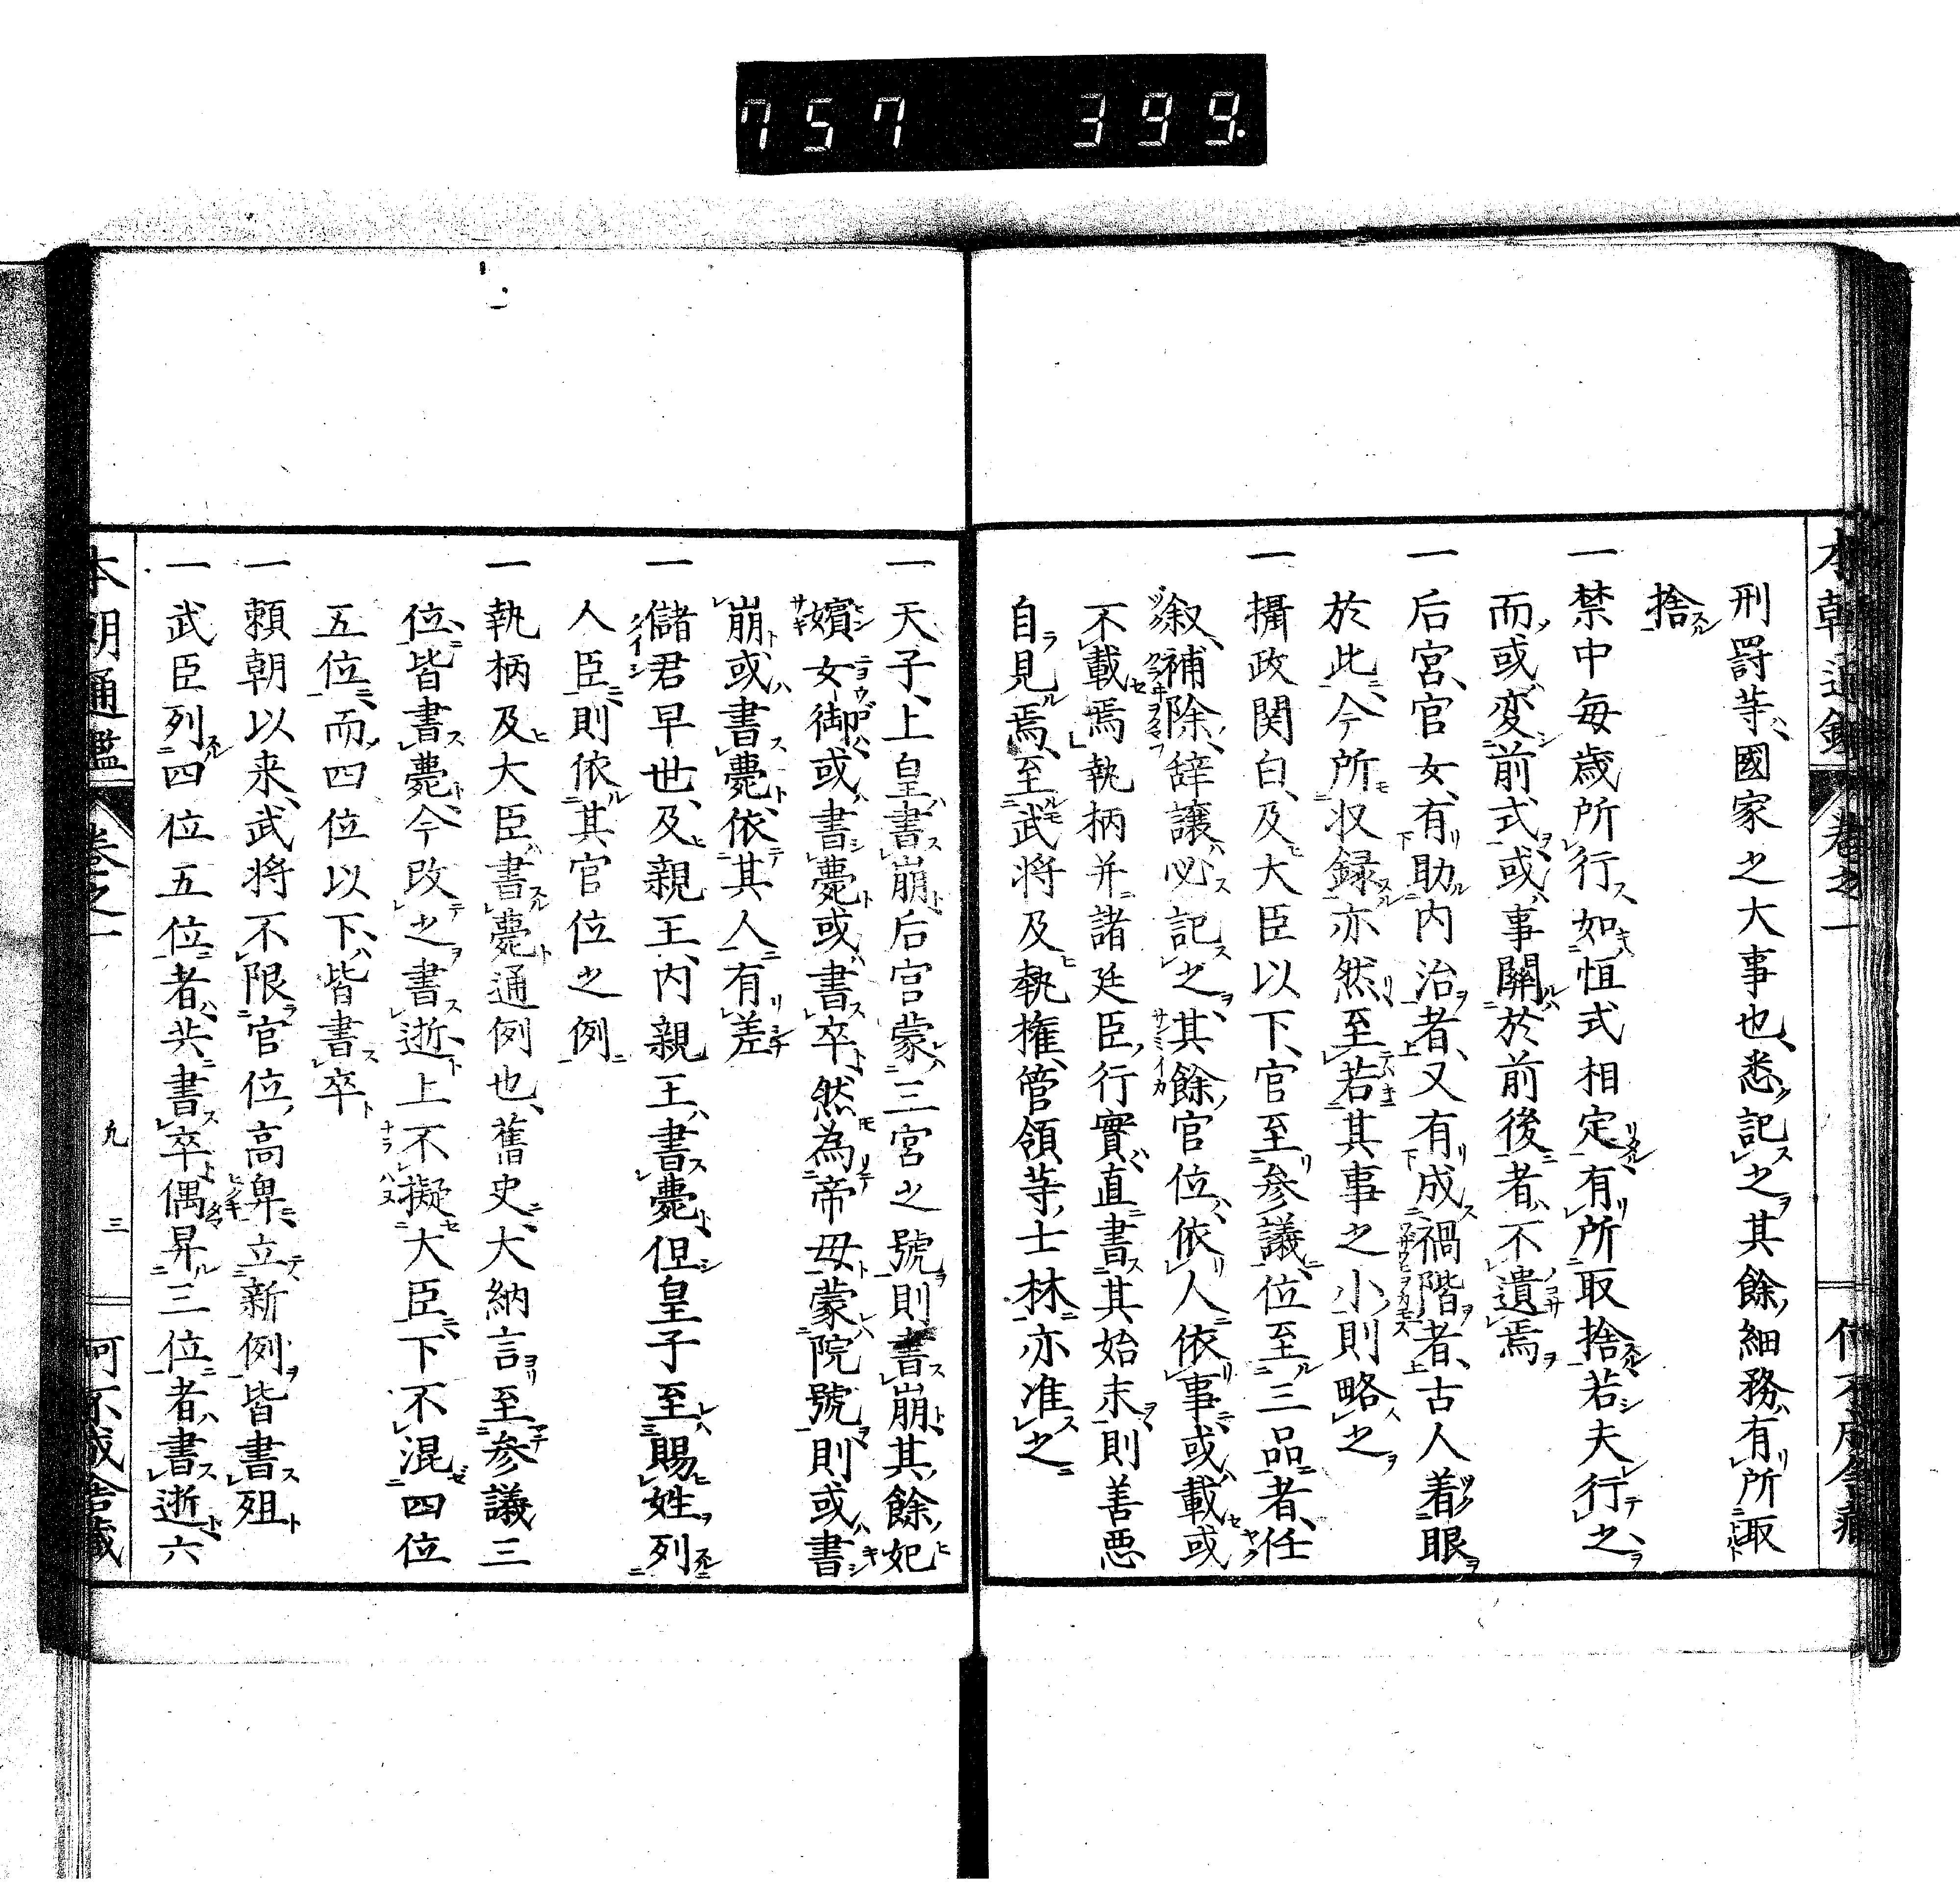 757 399.
刑罰等、國家之大事也、悉記之其餘細務有所取
捨
一禁中每歲所行如恒式相定有所取捨若夫行之
而或変前式或事關於前後者不遺焉
一后宮官女有助内治者又有成禍階者古人着眼
於此今所収録亦然至若其事之小則略之
一攝政関白及大臣以下官至参議位至三品者任
叙補除辞讓必記之其餘官位依人依事或載或
不載焉執柄并諸廷臣行實直書其始末則善悪
自見焉至武将及執権管領等士林亦准之
一天子上皇書崩后宮蒙三宮之號則書崩其餘妃
嬪女御或書薨或書卒然為帝母蒙院號則或書
崩或書薨依其人有差
一儲君早世及親王内親王書薨但皇子至賜姓列
人臣則依其官位之例
一執柄及大臣書薨通例也舊史大納言至参議三
位皆書薨今改之書逝上不擬大臣下不混四位
五位而四位以下皆書卒
一頼朝以来武将不限官位高卑立新例皆書殂
一武臣列四位五位者共書卒偶昇三位者書逝六
本朝通鑑 卷之一 九 三